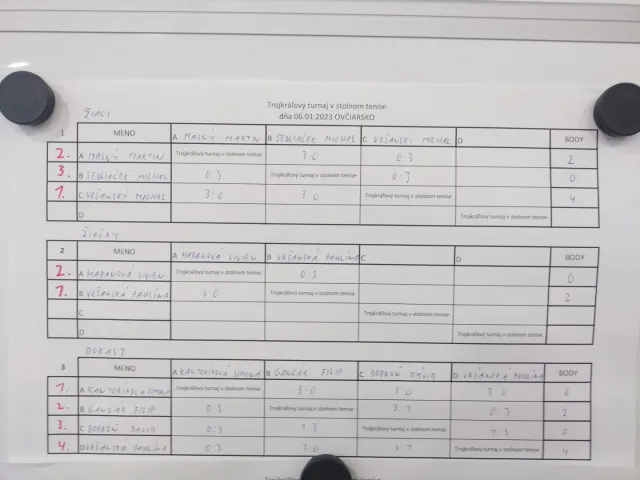 Trojkráľový turnaj v stolnom tenise
dňa 06.01.2023 OVČIARSKO
ŽIACI
1 MENO A MASNÝ MARTIN B SEDLIAČEK MICHAL C VRŠANSKÝ MICHAL D BODY
2. A MASNÝ MARTIN Trojkráľový turnaj v stolnom tenise 3:0 0:3 2
3. B SEDLIAČEK MICHAL 0:3 Trojkráľový turnaj v stolnom tenise 0:3 0
1. C VRŠANSKÝ MICHAL 3:0 3:0 Trojkráľový turnaj v stolnom tenise 4
D Trojkráľový turnaj v stolnom tenise
ŽIAČKY
2 MENO A VIVIEN B VRŠANSKÁ PAULÍNA C D BODY
2. A VIVIEN Trojkráľový turnaj v stolnom tenise 0:3 0
1. B VRŠANSKÁ PAULÍNA 3:0 Trojkráľový turnaj v stolnom tenise 2
C Trojkráľový turnaj v stolnom tenise
D Trojkráľový turnaj v stolnom tenise
DORAST
3 MENO A SIMONA B GANČÁR FILIP C DAVID D VRŠANSKÁ PAULÍNA BODY
1. A SIMONA Trojkráľový turnaj v stolnom tenise 3:0 3:0 3:0 6
2. B GANČÁR FILIP 0:3 Trojkráľový turnaj v stolnom tenise 3:1 0:3
3. C DAVID 0:3 1:3 Trojkráľový turnaj v stolnom tenise 1:3
4. D VRŠANSKÁ PAULÍNA 0:3 3:0 3:1 Trojkráľový turnaj v stolnom tenise 4